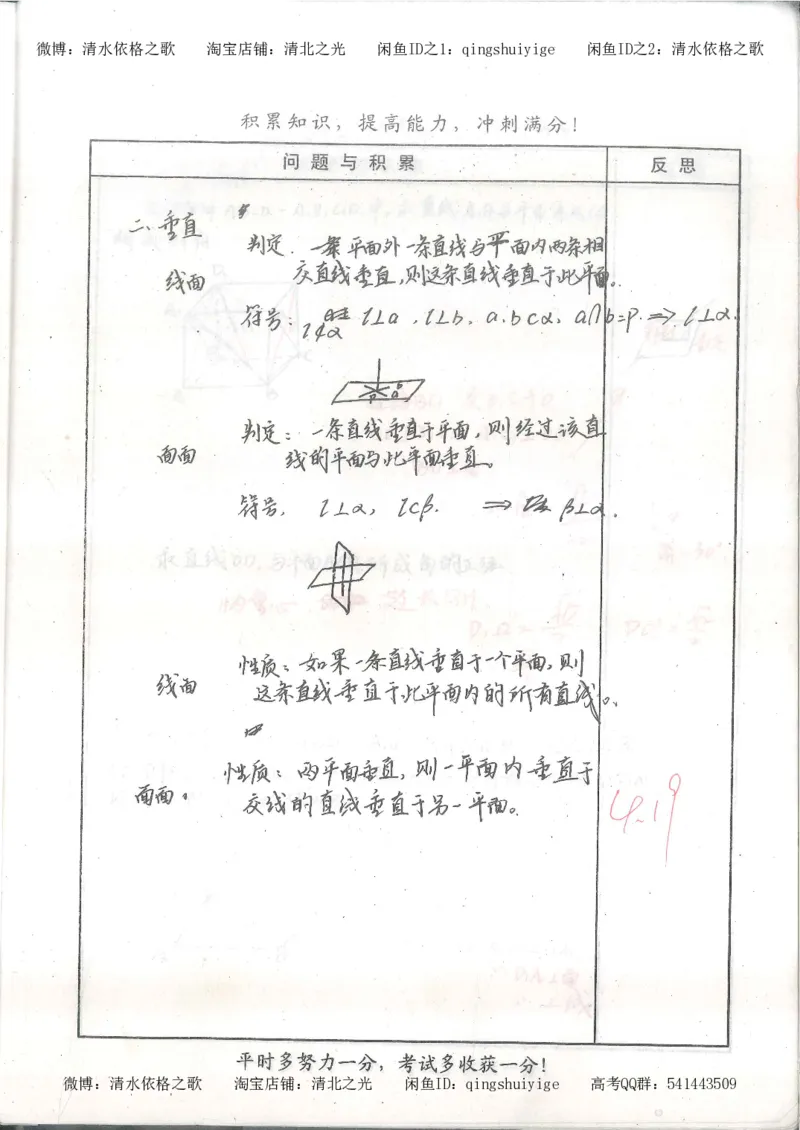 微博：清水依格之歌 淘宝店铺：清北之光 闲鱼ID之1：qingshuiyige 闲鱼ID之2：清水依格之歌
积累知识，提高能力，冲刺满分！
问题与积累 反思
二、垂直
线面
判定．一条平面外一条直线与平面内两条相
交直线垂直，则这条直线垂直于此平面。
符号： l⊄α l⊥a，l⊥b，a，b⊂α，a∩b=P．⇒ l⊥α．
P a b
面面
判定：一条直线垂直于平面，则经过该直
线的平面与此平面垂直。
符号， l⊥α，l⊂β． ⇒ β⊥α．
线面
性质：如果一条直线垂直于一个平面，则
这条直线垂直于此平面内的所有直线。
面面。
性质：两平面垂直，则一平面内垂直于
交线的直线垂直于另一平面。
4.19
平时多努力一分，考试多收获一分！
微博：清水依格之歌 淘宝店铺：清北之光 闲鱼ID：qingshuiyige 高考QQ群：541443509